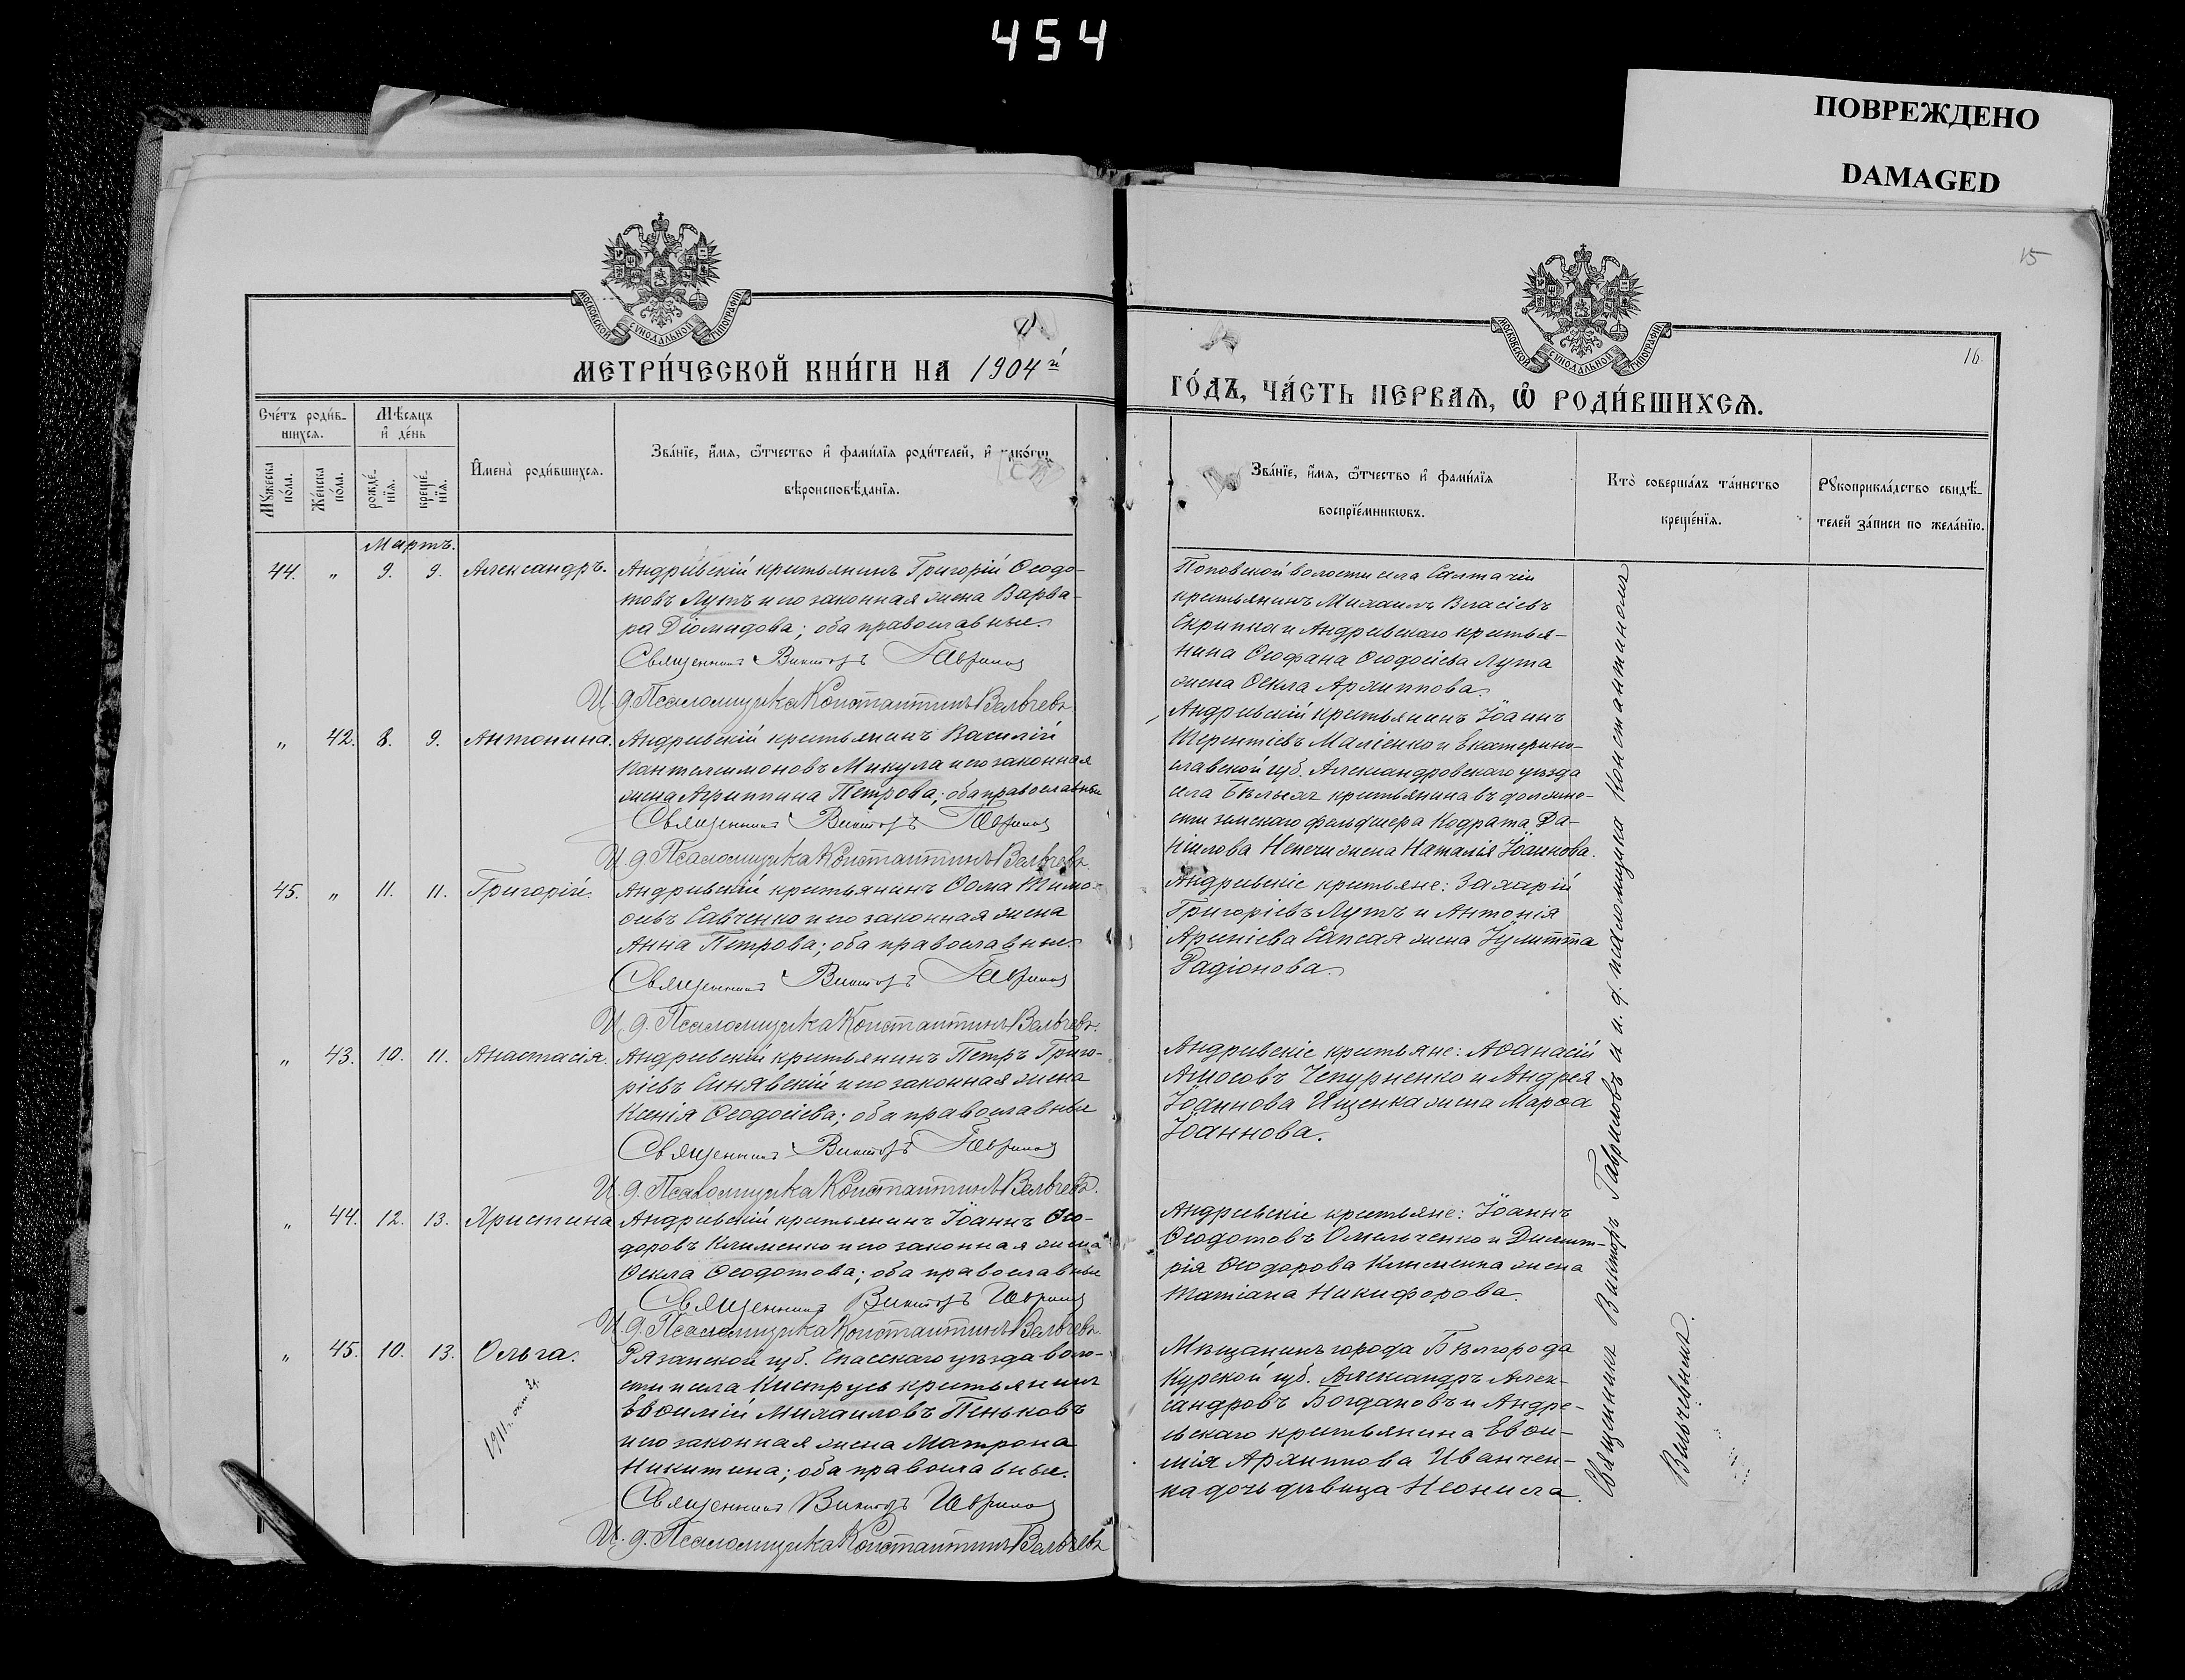 454
ПОВРЕЖДЕНО
DAMAGED
15
16
МОСКОВСКОЙ СѴНОДАЛЬНОЙ ТИПОГРАФІИ
МЕТРИ́ЧЕСКОЙ КНИ́ГИ НА 1904й
МОСКОВСКОЙ СѴНОДАЛЬНОЙ ТИПОГРАФІИ
ГО́ДЪ, ЧА́СТЬ ПЕРВАѦ, Ѡ РОДИ́ВШИХСѦ.
Сче́тъ роди́в-
шихсѧ.
Мѣ́сѧцъ
и҆ де́нь
Мꙋ́жеска
по́ла.
Же́нска
по́ла.
рожде́-
нїѧ.
креще́-
нїѧ.
И҆мена̀ роди́вшихсѧ.
Зва́нїе, и҆́мѧ, ѻ҆́тчество и҆ фами́лїѧ роди́телей, и҆ како́гѡ
вѣроисповѣ́данїѧ.
Зва́нїе, и҆́мѧ, ѻ҆́тчество и҆ фами́лїѧ
воспрїе́мникѡвъ.
Кто̀ соверша́лъ та́инство
креще́нїѧ.
Рꙋкоприкла́дство свидѣ́-
телей за́писи по жела́нїю.
Мартъ.
44. „ 9. 9. Александръ.
Андреевскій крестьянинъ Григорій Ѳеодо-
товъ Лутъ и его законная жена Варва-
ра Діомидова; оба православные.
Священникъ Викторъ Гавриловъ
И. д. Псаломщика Константинъ Вельчевъ.
Поповской волости села Салтачіи
крестьянинъ Михаилъ Власіевъ
Скрипка и Андреевскаго крестья-
нина Ѳеофана Ѳеодосіева Лута
жена Ѳекла Архиппова.
„ 42. 8. 9. Антонина.
Андреевскій крестьянинъ Василій
Пантелеимоновъ Микула и его законная
жена Агриппина Петрова; оба православные
Священникъ Викторъ Гавриловъ
И. д. Псаломщика Константинъ Вельчевъ.
Андреевскій крестьянинъ Іоаннъ
Терентіевъ Маліенко и Екатерино-
славской губ. Александровскаго уѣзда
села Бѣлыхъ крестьянина въ должно-
сти земскаго фельдшера Кодрата Да-
ніилова Непечи жена Наталія Іоаннова.
45. „ 11. 11. Григорій.
Андреевскій крестьянинъ Ѳома Тимо-
ѳеевъ Савченко и его законная жена
Анна Петрова; оба православные.
Священникъ Викторъ Гавриловъ
И. д. Псаломщика Константинъ Вельчевъ.
Андреевскіе крестьяне: Захарій
Григоріевъ Лутъ и Антонія
Арсеніева Сапсая жена Іулитта
Радіонова.
„ 43. 10. 11. Анастасія.
Андреевскій крестьянинъ Петръ Григо-
ріевъ Синявскій и его законная жена
Ксенія Ѳеодосіева; оба православные
Священникъ Викторъ Гавриловъ
И. д. Псаломщика Константинъ Вельчевъ.
Андреевскіе крестьяне: Аѳанасій
Амосовъ Чепурненко и Андрея
Іоаннова Ищенка жена Марѳа
Іоаннова.
„ 44. 12. 13. Христина
Андреевскій крестьянинъ Іоаннъ Ѳео-
доровъ Клименко и его законная жена
Ѳекла Ѳеодотова; оба православные
Священникъ Викторъ Гавриловъ
И. д. Псаломщика Константинъ Вельчевъ.
Андреевскіе крестьяне: Іоаннъ
Ѳеодотовъ Омельченко и Димит-
рія Ѳеодорова Клименка жена
Татіана Никифорова.
„ 45. 10. 13. Ольга.
Рязанской губ. Спасскаго уѣзда воло-
сти и села Киструсъ крестьянинъ
Евѳимій Михаиловъ Пеньковъ
и его законная жена Матрона
Никитина; оба православные.
Священникъ Викторъ Гавриловъ
И. д. Псаломщика Константинъ Вельчевъ
Мѣщанинъ города Бѣлгорода
Курской губ. Александръ Алек-
сандровъ Богдановъ и Андре-
евскаго крестьянина Евѳи-
мія Архиппова Иванчен-
ка дочь дѣвица Неонила.
Священникъ Викторъ Гавриловъ и и. д. псаломщика Константинома
Вельчевыма.